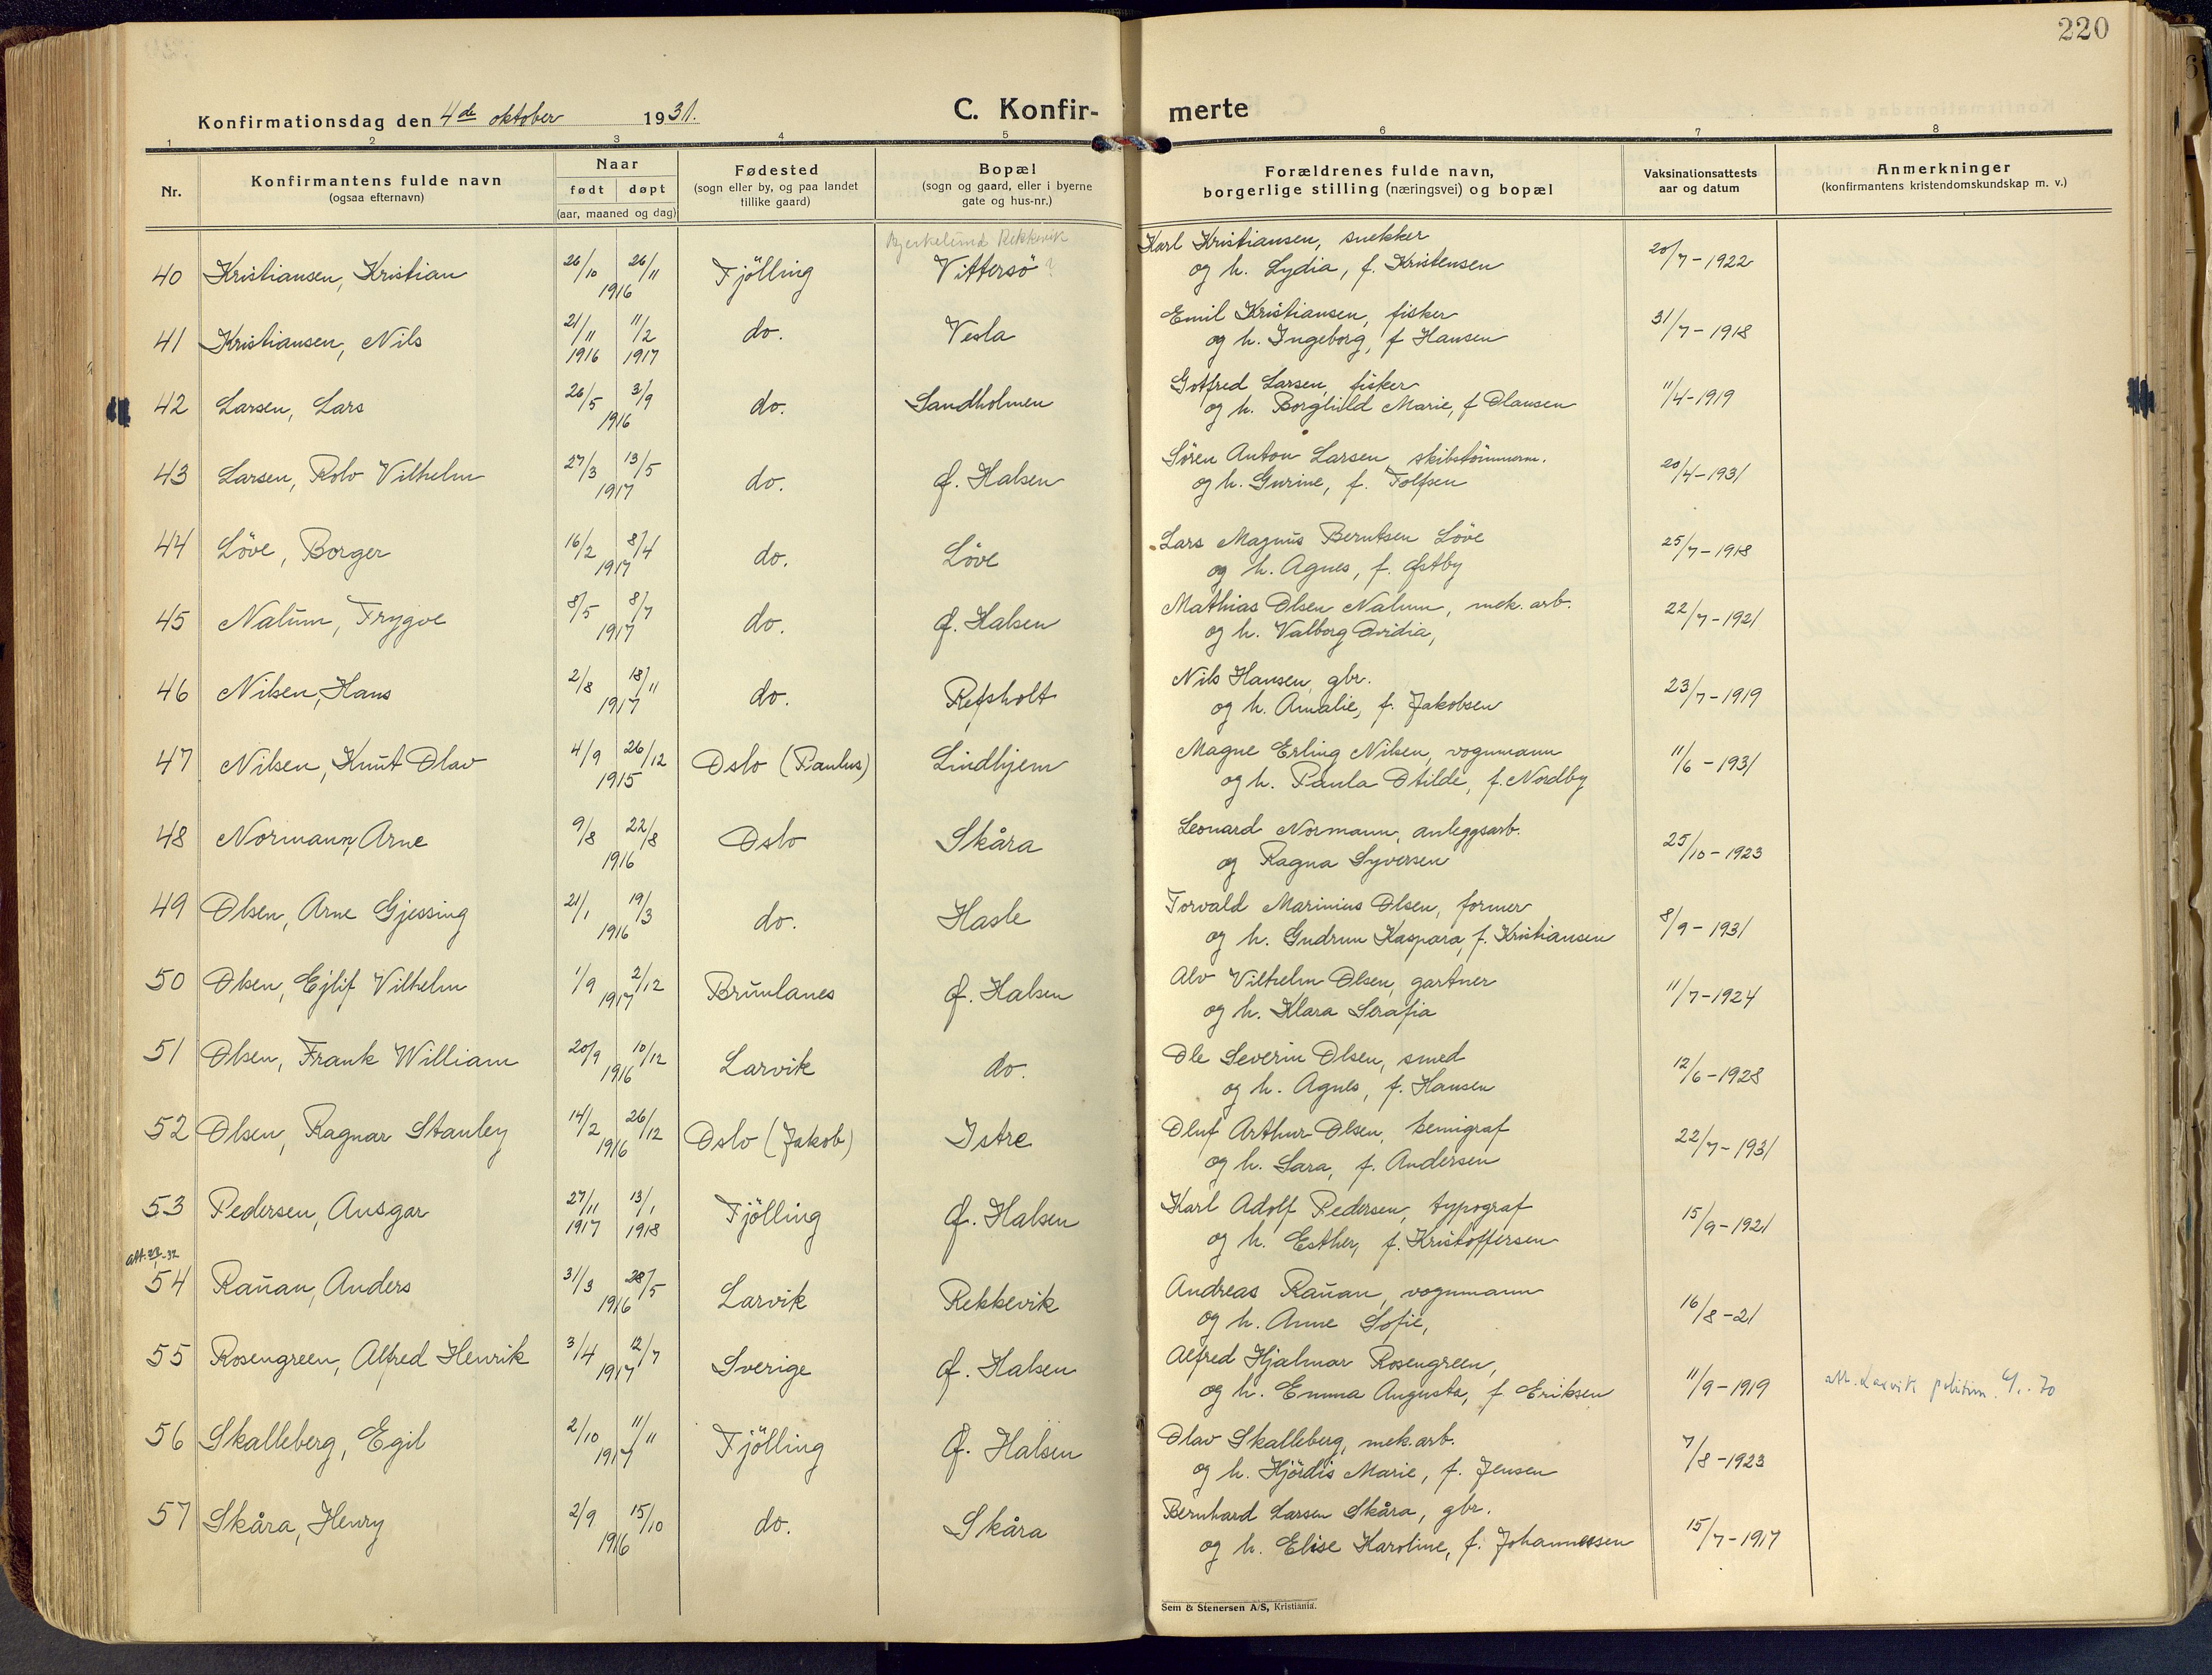 220
Konfirmationsdag den 4de oktober 1931.
C. Konfir-
merte
1 2 3 4 5 6 7 8
Nr.
Konfirmantens fulde navn
(ogsaa efternavn)
Naar
født døpt
(aar, maaned og dag)
Fødested
(sogn eller by, og paa landet
tillike gaard)
Bopæl
(sogn og gaard, eller i byerne
gate og hus-nr.)
Forældrenes fulde navn,
borgerlige stilling (næringsvei) og bopæl
Vaksinationsattests
aar og datum
Anmerkninger
(konfirmantens kristendomskundskap m. v.)
Bjerkelund Rekkevik
40 Kristiansen, Kristian 26/10 26/11 1916 Fjölling Vittersö ? Karl Kristiansen, snekker 20/7-1922
og h. Lydia, f. Kristensen
41 Kristiansen, Nils 21/11 1916 11/2 1917 do. Vesla Emil Kristiansen, fisker 31/7-1918
og h. Ingeborg, f Hansen
42 Larsen, Lars 26/5 3/9 1916 do. Sandholmen Gotfred Larsen, fisker 11/4-1919
og h. Borghild Marie, f Olausen
43 Larsen, Rolv Vilhelm 27/3 13/5 1917 do. Ø. Halsen Sören Anton Larsen, skibstömmerm. 20/4-1931
og h. Gurine, f. Tolfsen
44 Löve, Borger 16/2 8/4 1917 do. Löve Lars Magnus Berntsen Löve 25/7-1918
og h. Agnes, f. Østby
45 Nalum, Trygve 8/5 8/7 1917 do. Ø. Halsen Mathias Olsen Nalum, mek. arb. 22/7-1921
og h. Valborg Ovidia,
46 Nilsen, Hans 2/8 18/11 1917 do. Refsholt Nils Hansen, gbr. 23/7-1919
og h. Amalie, f. Jakobsen
47 Nilsen, Knut Olav 4/9 26/12 1915 Oslo (Paulus) Lindhjem Magne Erling Nilsen, vognmann 11/6-1931
og h. Paula Otilde, f. Nordby
48 Normann, Arne 9/8 22/8 1916 Oslo Skåra Leonard Normann, anleggsarb. 25/10-1923
og Ragna Syversen
49 Olsen, Arne Gjessing 21/1 19/3 1916 do. Hasle Torvald Marinius Olsen, former 8/9-1931
og h. Gudrun Kaspara, f. Kristiansen
50 Olsen, Ejlif Vilhelm 1/9 2/12 1917 Brunlanes Ø. Halsen Alv Vilhelm Olsen, gartner 11/7-1924
og h. Klara Serafia
51 Olsen, Frank William 20/9 10/12 1916 Larvik do. Ole Severin Olsen, smed 12/6-1928
og h. Agnes, f. Hansen
52 Olsen, Ragnar Stanley 14/2 26/12 1916 Oslo (Jakob) Istre Oluf Arthur Olsen, kemigraf 22/7-1931
og h. Sara, f. Andersen
53 Pedersen, Ansgar 27/11 1917 13/1 1918 Fjölling Ø. Halsen Karl Adolf Pedersen, typograf 15/9-1921
og h. Esther, f. Kristoffersen
54 Rauan, Anders 31/3 28/5 1916 Larvik Rekkevik Andreas Rauan, vognmann 16/8-21
og h. Anne Sofie,
55 Rosengreen, Alfred Henrik 3/4 12/7 1917 Sverige Ø. Halsen Alfred Hjalmar Rosengreen, 11/9-1919
og h. Emma Augusta, f Eriksen att. Larvik
56 Skalleberg, Egil 2/10 11/11 1917 Fjölling Ø. Halsen Olav Skalleberg, mek. arb. 7/8-1923
og h. Hjördis Marie, f. Jensen
57 Skåra, Henry 2/9 15/10 1916 do. Skåra Bernhard Larsen Skåra, gbr. 15/7-1917
og h. Elise Karoline, f. Johannessen
Sem & Stenersen A/S, Kristiania.